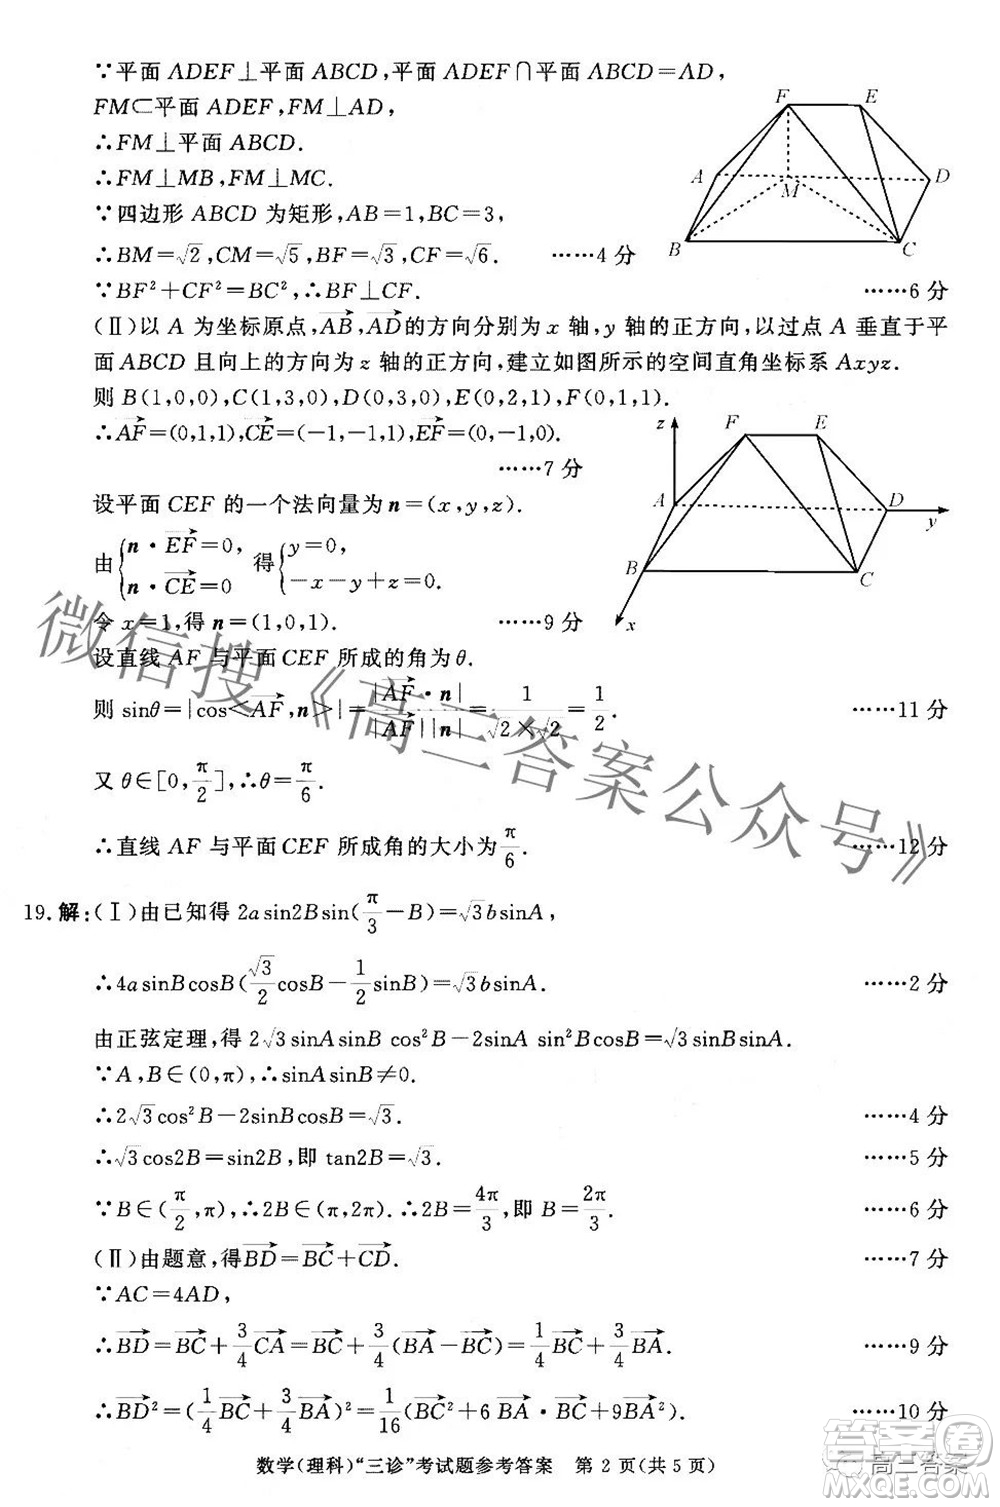 ∵平面 ADEF⊥平面 ABCD,平面 ADEF∩平面 ABCD=AD,
FM⊂平面 ADEF,FM⊥AD,
∴FM⊥平面 ABCD.
∴FM⊥MB,FM⊥MC.
∵四边形 ABCD 为矩形,AB=1,BC=3,
∴BM=√2,CM=√5,BF=√3,CF=√6. ……4 分
∵BF²+CF²=BC²,∴BF⊥CF. ……6 分
F E
A M D
B C
(Ⅱ)以 A 为坐标原点,\overrightarrow{AB},\overrightarrow{AD}的方向分别为 x 轴,y 轴的正方向,以过点 A 垂直于平
面 ABCD 且向上的方向为 z 轴的正方向,建立如图所示的空间直角坐标系 Axyz.
则 B(1,0,0),C(1,3,0),D(0,3,0),E(0,2,1),F(0,1,1).
∴\overrightarrow{AF}=(0,1,1),\overrightarrow{CE}=(-1,-1,1),\overrightarrow{EF}=(0,-1,0).
……7 分
z F E
A D
y
B C
x
设平面 CEF 的一个法向量为 n=(x,y,z).
由{n·\overrightarrow{EF}=0, n·\overrightarrow{CE}=0 得{y=0, -x-y+z=0.
令 x=1,得 n=(1,0,1). ……9 分
设直线 AF 与平面 CEF 所成的角为 θ.
则 sinθ=|cos<\overrightarrow{AF},n>|=|\overrightarrow{AF}·n|/(|\overrightarrow{AF}||n|)=1/(√2×√2)=1/2. ……11 分
又 θ∈[0,π/2],∴θ=π/6.
∴直线 AF 与平面 CEF 所成角的大小为π/6. ……12 分
19.解:(Ⅰ)由已知得 2asin2Bsin(π/3-B)=√3bsinA,
∴4asinBcosB(√3/2cosB-1/2sinB)=√3bsinA. ……2 分
由正弦定理,得 2√3sinAsinB cos²B-2sinA sin²BcosB=√3sinAsinB.
∵A,B∈(0,π),∴sinAsinB≠0.
∴2√3cos²B-2sinBcosB=√3. ……4 分
∴√3cos2B=sin2B,即 tan2B=√3. ……5 分
∵B∈(π/2,π),∴2B∈(π,2π).∴2B=4π/3,即 B=2π/3. ……6 分
(Ⅱ)由题意,得\overrightarrow{BD}=\overrightarrow{BC}+\overrightarrow{CD}. ……7 分
∵AC=4AD,
∴\overrightarrow{BD}=\overrightarrow{BC}+3/4\overrightarrow{CA}=\overrightarrow{BC}+3/4(\overrightarrow{BA}-\overrightarrow{BC})=1/4\overrightarrow{BC}+3/4\overrightarrow{BA}. ……9 分
∴\overrightarrow{BD}²=(1/4\overrightarrow{BC}+3/4\overrightarrow{BA})²=1/16(\overrightarrow{BC}²+6\overrightarrow{BA}·\overrightarrow{BC}+9\overrightarrow{BA}²). ……10 分
数学(理科)“三诊”考试题参考答案 第 2 页(共 5 页)
微信搜《高三答案公众号》
答案圈
高三答案
MXQE.COM